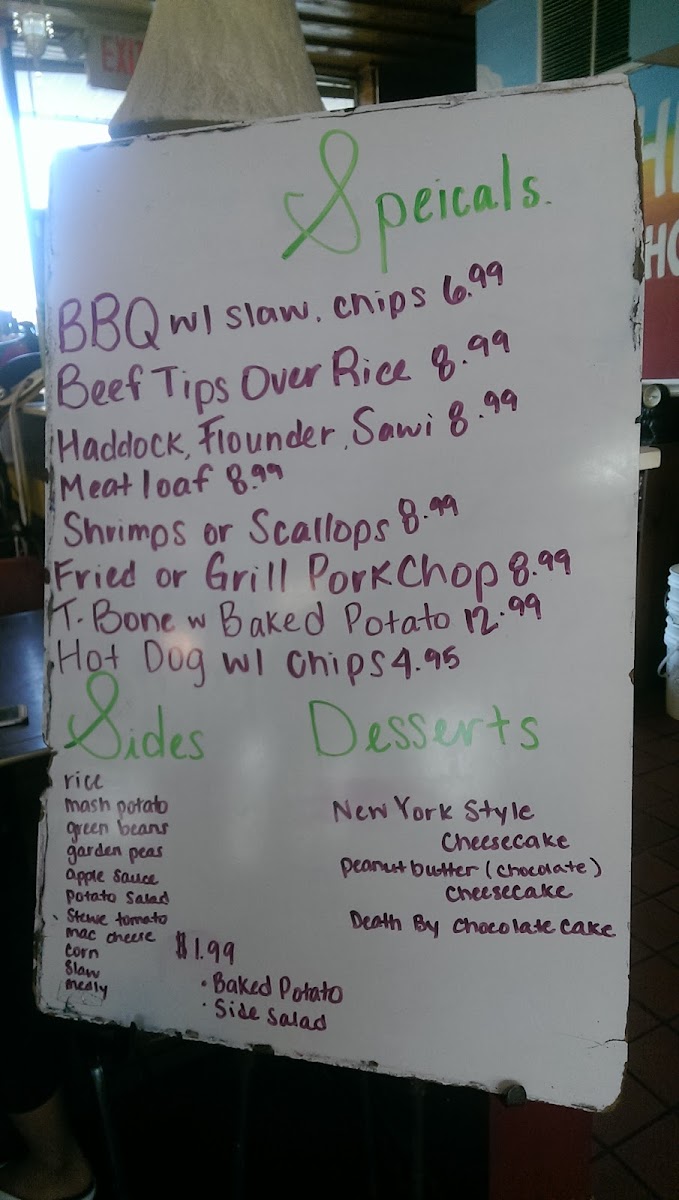 EXIT
Speicals.
BBQ w/ slaw. chips 6.99
Beef Tips Over Rice 8.99
Haddock, Flounder, Sawi 8.99
Meatloaf 8.99
Shrimps or Scallops 8.99
Fried or Grill Pork Chop 8.99
T. Bone w Baked Potato 12.99
Hot Dog w/ chips 4.95
Sides
rice
mash potato
green beans
garden peas
apple sauce
potato salad
Stewe tomato
mac cheese
corn
slaw
medly
$1.99
· Baked Potato
· Side Salad
Desserts
New York Style
Cheesecake
Peanutbutter (chocolate)
Cheesecake
Death By Chocolate Cake